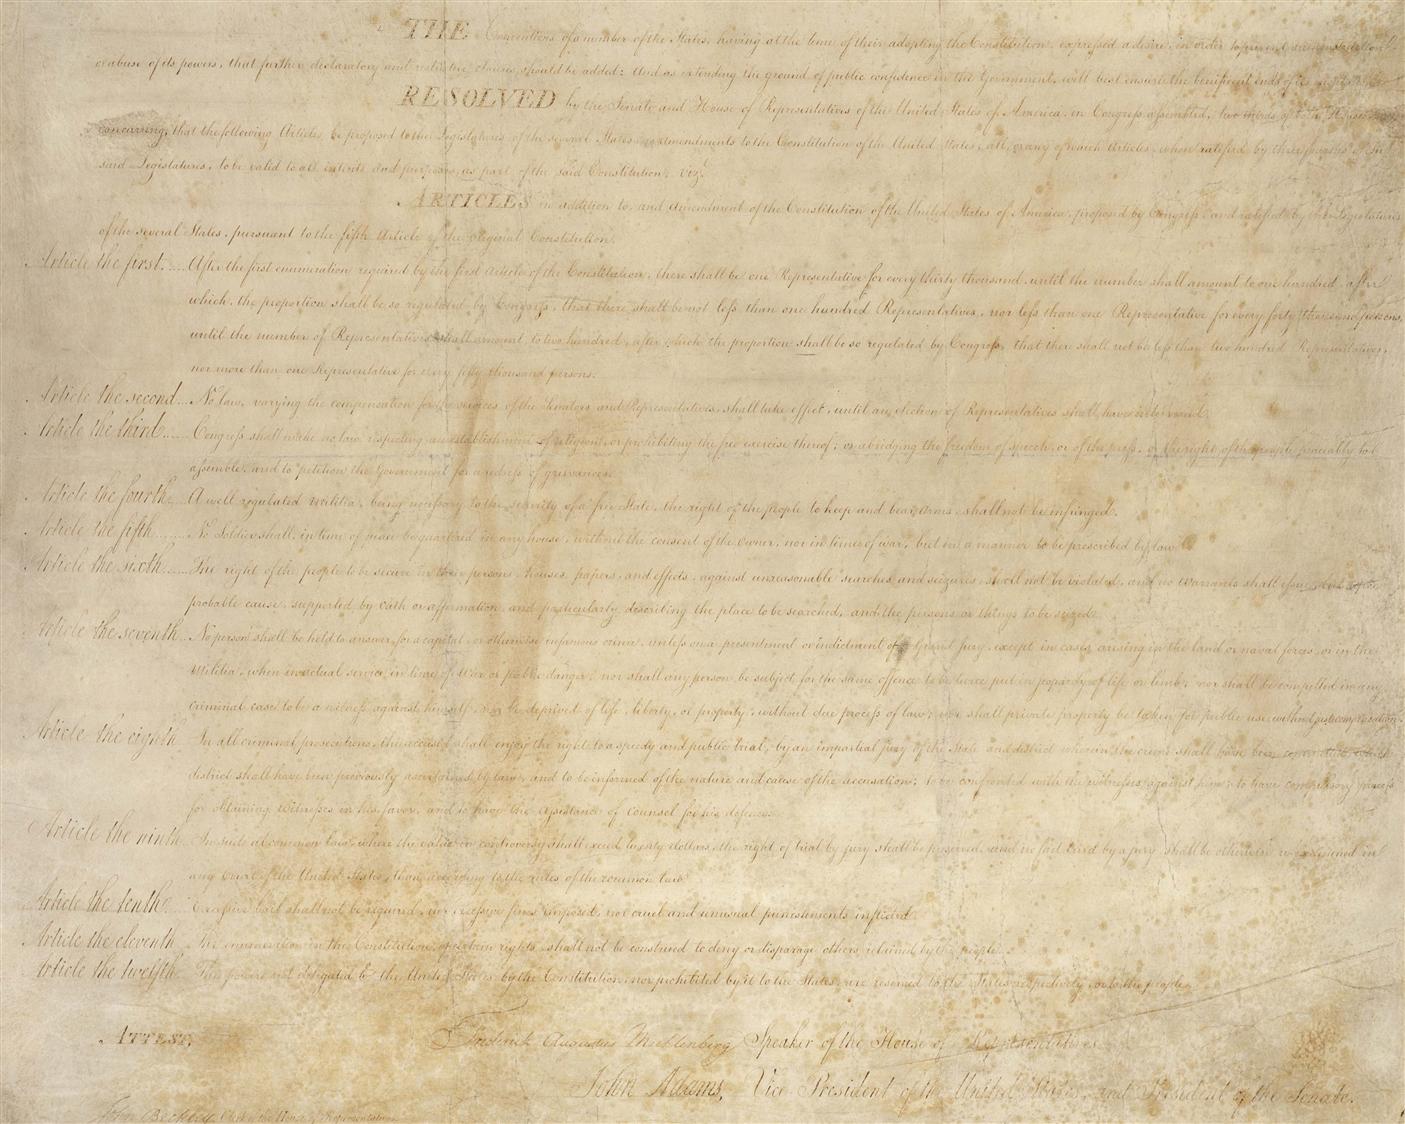 THE Conventions of a number of the States, having at the time of their adopting the Constitution, expressed a desire, in order to prevent misconstruction
or abuse of its powers, that further declaratory and restrictive clauses should be added: And as extending the ground of public confidence in the Government, will best ensure the beneficent ends of its
RESOLVED by the Senate and House of Representatives of the United States of America, in Congress assembled, two thirds of both Houses
concurring, that the following Articles be proposed to the Legislatures of the several States, as amendments to the Constitution of the United States, all, or any of which Articles, when ratified by three fourths of the
said Legislatures, to be valid to all intents and purposes, as part of the said Constitution; viz.t
ARTICLES in addition to, and Amendment of the Constitution of the United States of America, proposed by Congress, and ratified by the Legislatures
of the several States, pursuant to the fifth Article of the original Constitution.
Article the first..... After the first enumeration required by the first Article of the Constitution, there shall be one Representative for every thirty thousand, until the number shall amount to one hundred, after
which, the proportion shall be so regulated by Congress, that there shall be not less than one hundred Representatives, nor less than one Representative for every forty thousand persons,
until the number of Representatives shall amount to two hundred, after which the proportion shall be so regulated by Congress, that there shall not be less than two hundred Representatives,
nor more than one Representative for every fifty thousand persons.
Article the second... No law, varying the compensation for the services of the Senators and Representatives, shall take effect, until an election of Representatives shall have intervened.
Article the third...... Congress shall make no law respecting an establishment of religion, or prohibiting the free exercise thereof; or abridging the freedom of speech, or of the press, or the right of the people peaceably to
assemble, and to petition the Government for a redress of grievances.
Article the fourth... A well regulated Militia, being necessary to the security of a free State, the right of the people to keep and bear Arms, shall not be infringed.
Article the fifth....... No Soldier shall, in time of peace be quartered in any house, without the consent of the Owner, nor in time of war, but in a manner to be prescribed by law.
Article the sixth...... The right of the people to be secure in their persons, houses, papers, and effects, against unreasonable searches and seizures, shall not be violated, and no Warrants shall issue, but upon
probable cause, supported by Oath or affirmation, and particularly describing the place to be searched, and the persons or things to be seized.
Article the seventh.. No person shall be held to answer for a capital, or otherwise infamous crime, unless on a presentment or indictment of a Grand Jury, except in cases arising in the land or naval forces, or in the
Militia, when in actual service in time of War or public danger; nor shall any person be subject for the same offence to be twice put in jeopardy of life or limb; nor shall be compelled in any
criminal case to be a witness against himself, nor be deprived of life, liberty, or property, without due process of law; nor shall private property be taken for public use, without just compensation.
Article the eighth.. In all criminal prosecutions, the accused shall enjoy the right to a speedy and public trial, by an impartial jury of the State and district wherein the crime shall have been committed, which
district shall have been previously ascertained by law, and to be informed of the nature and cause of the accusation; to be confronted with the witnesses against him; to have compulsory process
for obtaining witnesses in his favor, and to have the Assistance of Counsel for his defence.
Article the ninth.. In suits at common law, where the value in controversy shall exceed twenty dollars, the right of trial by jury shall be preserved, and no fact tried by a jury, shall be otherwise re-examined in
any Court of the United States, than according to the rules of the common law.
Article the tenth.. Excessive bail shall not be required, nor excessive fines imposed, nor cruel and unusual punishments inflicted.
Article the eleventh. The enumeration in the Constitution, of certain rights, shall not be construed to deny or disparage others retained by the people.
Article the twelfth. The powers not delegated to the United States by the Constitution, nor prohibited by it to the States, are reserved to the States respectively, or to the people.
ATTEST,
Frederick Augustus Muhlenberg Speaker of the House of Representatives.
John Adams, Vice-President of the United States, and President of the Senate.
John Beckley, Clerk of the House of Representatives.